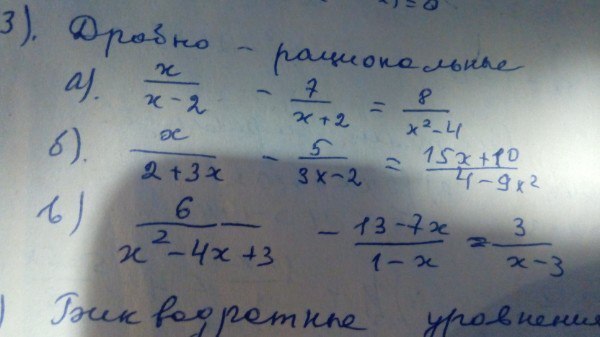 3). Дробно - рациональные
а). x/(x-2) - 7/(x+2) = 8/(x²-4)
б). x/(2+3x) - 5/(3x-2) = (15x+10)/(4-9x²)
в) 6/(x²-4x+3) - (13-7x)/(1-x) = 3/(x-3)
) Биквадратные уравнения